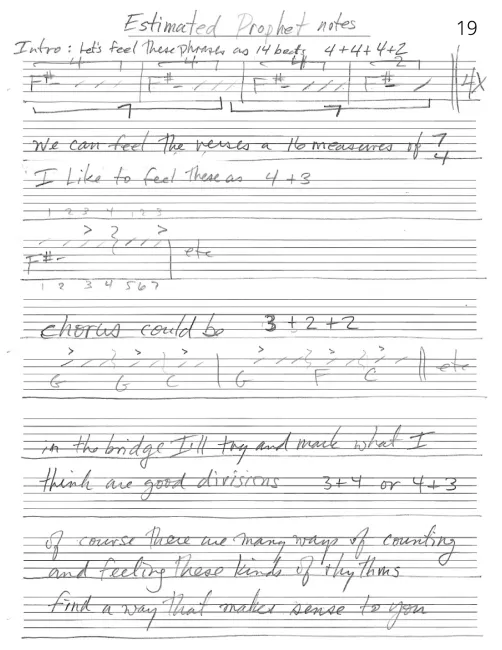 Estimated Prophet notes
19
Intro: Let's feel these phrases as 14 beats 4+4+4+2
4 4 4 2
F#- F#- F#- F#- 4X
7 7
We can feel the verses a 16 measures of 7/4
I Like to feel these as 4+3
1 2 3 4 1 2 3
> >
F#- etc
1 2 3 4 5 6 7
chorus could be 3+2+2
> > > > > >
G G C G F C etc
in the bridge I'll try and mark what I
think are good divisions 3+4 or 4+3
of course there are many ways of counting
and feeling these kinds of rhythms
find a way that makes sense to you